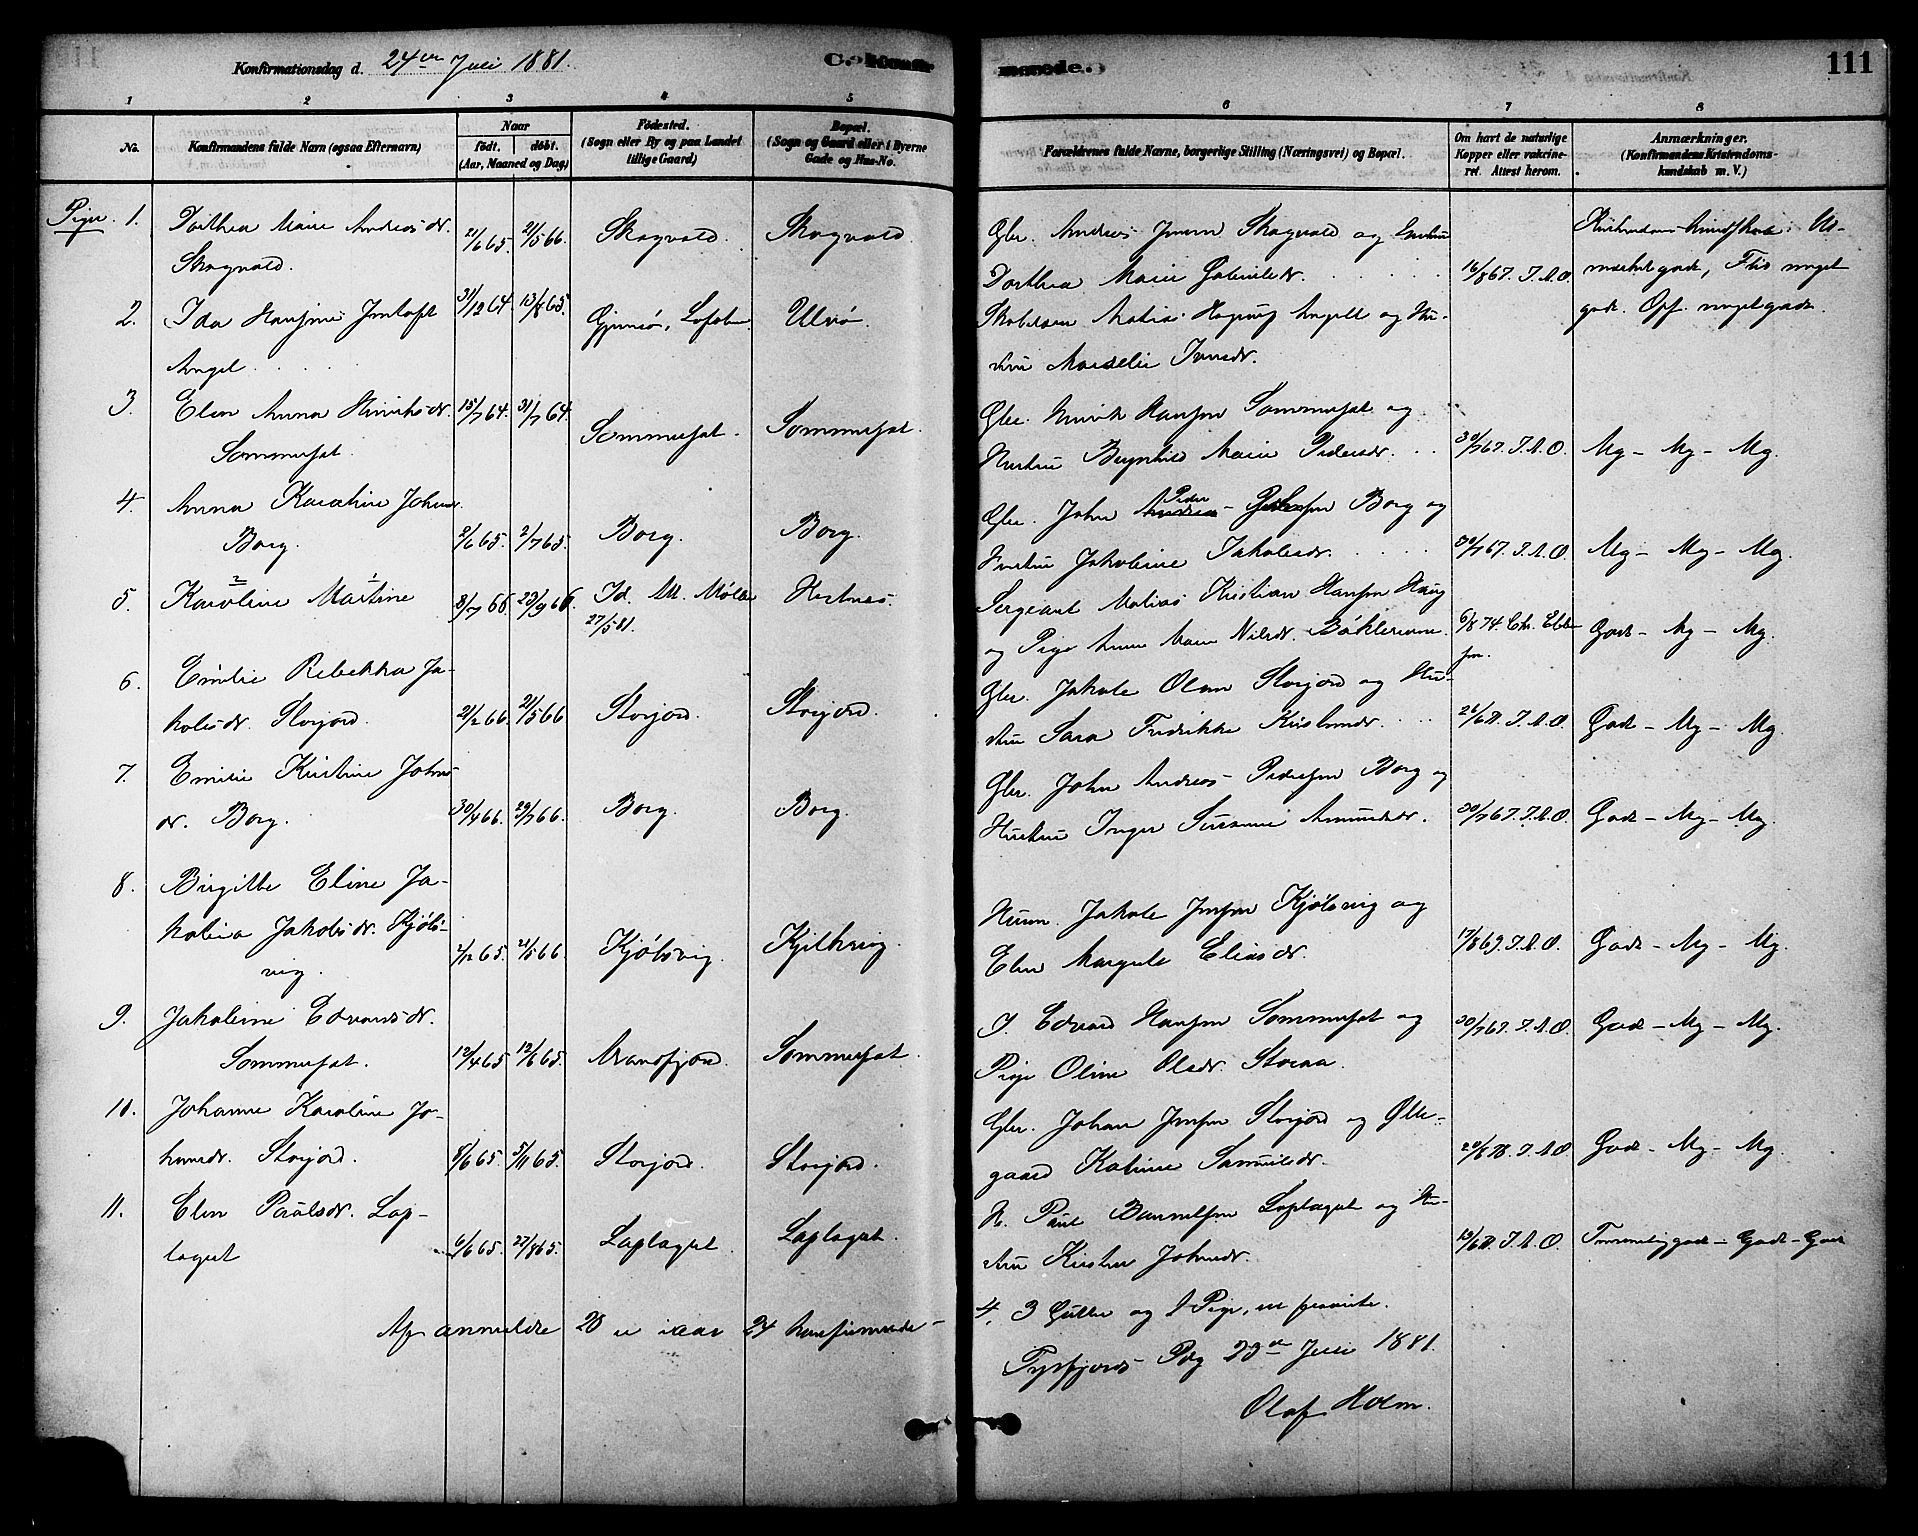 Konfirmationsdag d. 24de Juli 1881.
C. Konfir
merede.
111
1 2 3 4 5 6 7 8
No.
Konfirmandens fulde Navn (ogsaa Efternavn)
Naar
født. døbt.
(Aar, Maaned og Dag)
Fødested.
(Sogn eller By og paa Landet
tillige Gaard)
Bopæl.
(Sogn og Gaard eller i Byerne
Gade og Hus-No.
Forældrenes fulde Navne, borgerlige Stilling (Næringsvei) og Bopæl.
Om havt de naturlige
Kopper eller vakcine-
ret. Attest herom.
Anmærkninger.
(Konfirmandens Kristendoms-
kundskab m. V.)
Piger. 1. Dorthea Marie Andreasdr. 21/6 65. 21/5 66. Skogvold. Skogvold. Gbr. Andreas Jensen Skogvold og Hustru
Skogvold. Dorthea Marie Gabrielsdr. 16/8 67. J.A.O.
Kristendoms-kundskab: Ud-
mærket godt, Flid meget
godt. Opf. meget godt.
2. Ida Hansine Jentoft 31/12 64. 13/8 65. Gimsø, Lofoten. Ulvø. Matias Hagerup Angell og Hu-
Angel. stru
3. Elen Anna Henriksdr. 15/7 64. 31/7 64. Sommerset. Sommerset. Gbr. Henrik Hansen Sommerset og
Sommerset. Hustru Marie Pedersdr. 30/7 67. J.A.O. Mg - Mg - Mg.
4. Anna Karoline Johnsdr.
Borg. 2/6 65. 2/7 65. Borg. Borg. Gbr. John Andreas Peder Borg og
Hustru Jakobine Jakobsdr. 30/7 67. J.A.O. Mg - Mg - Mg.
5. Karoline Martine 8/7 66. 23/9 66. Id. M. Møller Hestnes. Sergeant Matias Kristian Hansen Haug
2 1 27/5 81. og Pige Anne Marie Nilsdr. 6/8 74. Chr. Ebbe
sen. Godt - Mg - Mg.
6. Emilie Rebekka Ja-
kobsdr. Storjord. 21/2 66. 21/5 66 Storjord. Storjord. Gbr. Jakob Olsen Storjord og Hu-
stru Sara Fredrikke J.A.O. Godt - Mg - Mg.
7. Emilie Kristine Johns
dr. Borg. 30/4 66. 29/7 66. Borg. Borg. Gbr. John Andreas Pedersen Borg og
Hustru Inger Susanne Amundsdr. 30/7 67. J.A.O. Godt - Mg - Mg.
8. Birgitte Eline Ja-
kobia Jakobsdr. Kjøbs-
vig. 2/12 65. 21/5 66. Kjøbsvig. Husm. Jakob Jensen Kjøbsvig og
Elen Margrete Eliasdr. 17/8 69. J.A.O. Godt - Mg - Mg.
9. Jakobine Edvardsdr.
Sommerset. 12/4 65. 12/6 65. Mansfjord. Sommerset. I. Edvard Hansen Sommerset og
Pige Oline Olsdr. Storaa. 30/7 67. J.A.O. Godt - Mg - Mg.
10. Johanne Karoline Jo-
hansdr. Storjord. 8/6 65. 5/11 65. Storjord. Storjord. Gbr. Johan Jensen Storjord og Olle-
gaard Katrine Samuelsdr. J.A.O. Godt - Mg - Mg.
11. Elen Paulsdr. Lap-
laget 6/6 65. 27/8 65. Laplaget. Laplaget. H. Paul Laplaget og Hu-
stru Kirsten Johnsdr. J.A.O. Temmelig godt - Godt - Godt
Af anmeldte 28 er iaar 24 konfirmerede -
4, 3 Gutter og 1 Pige, ere fraviste.
Tysfjords Pdg 23de Juli 1881.
Olaf Holm.